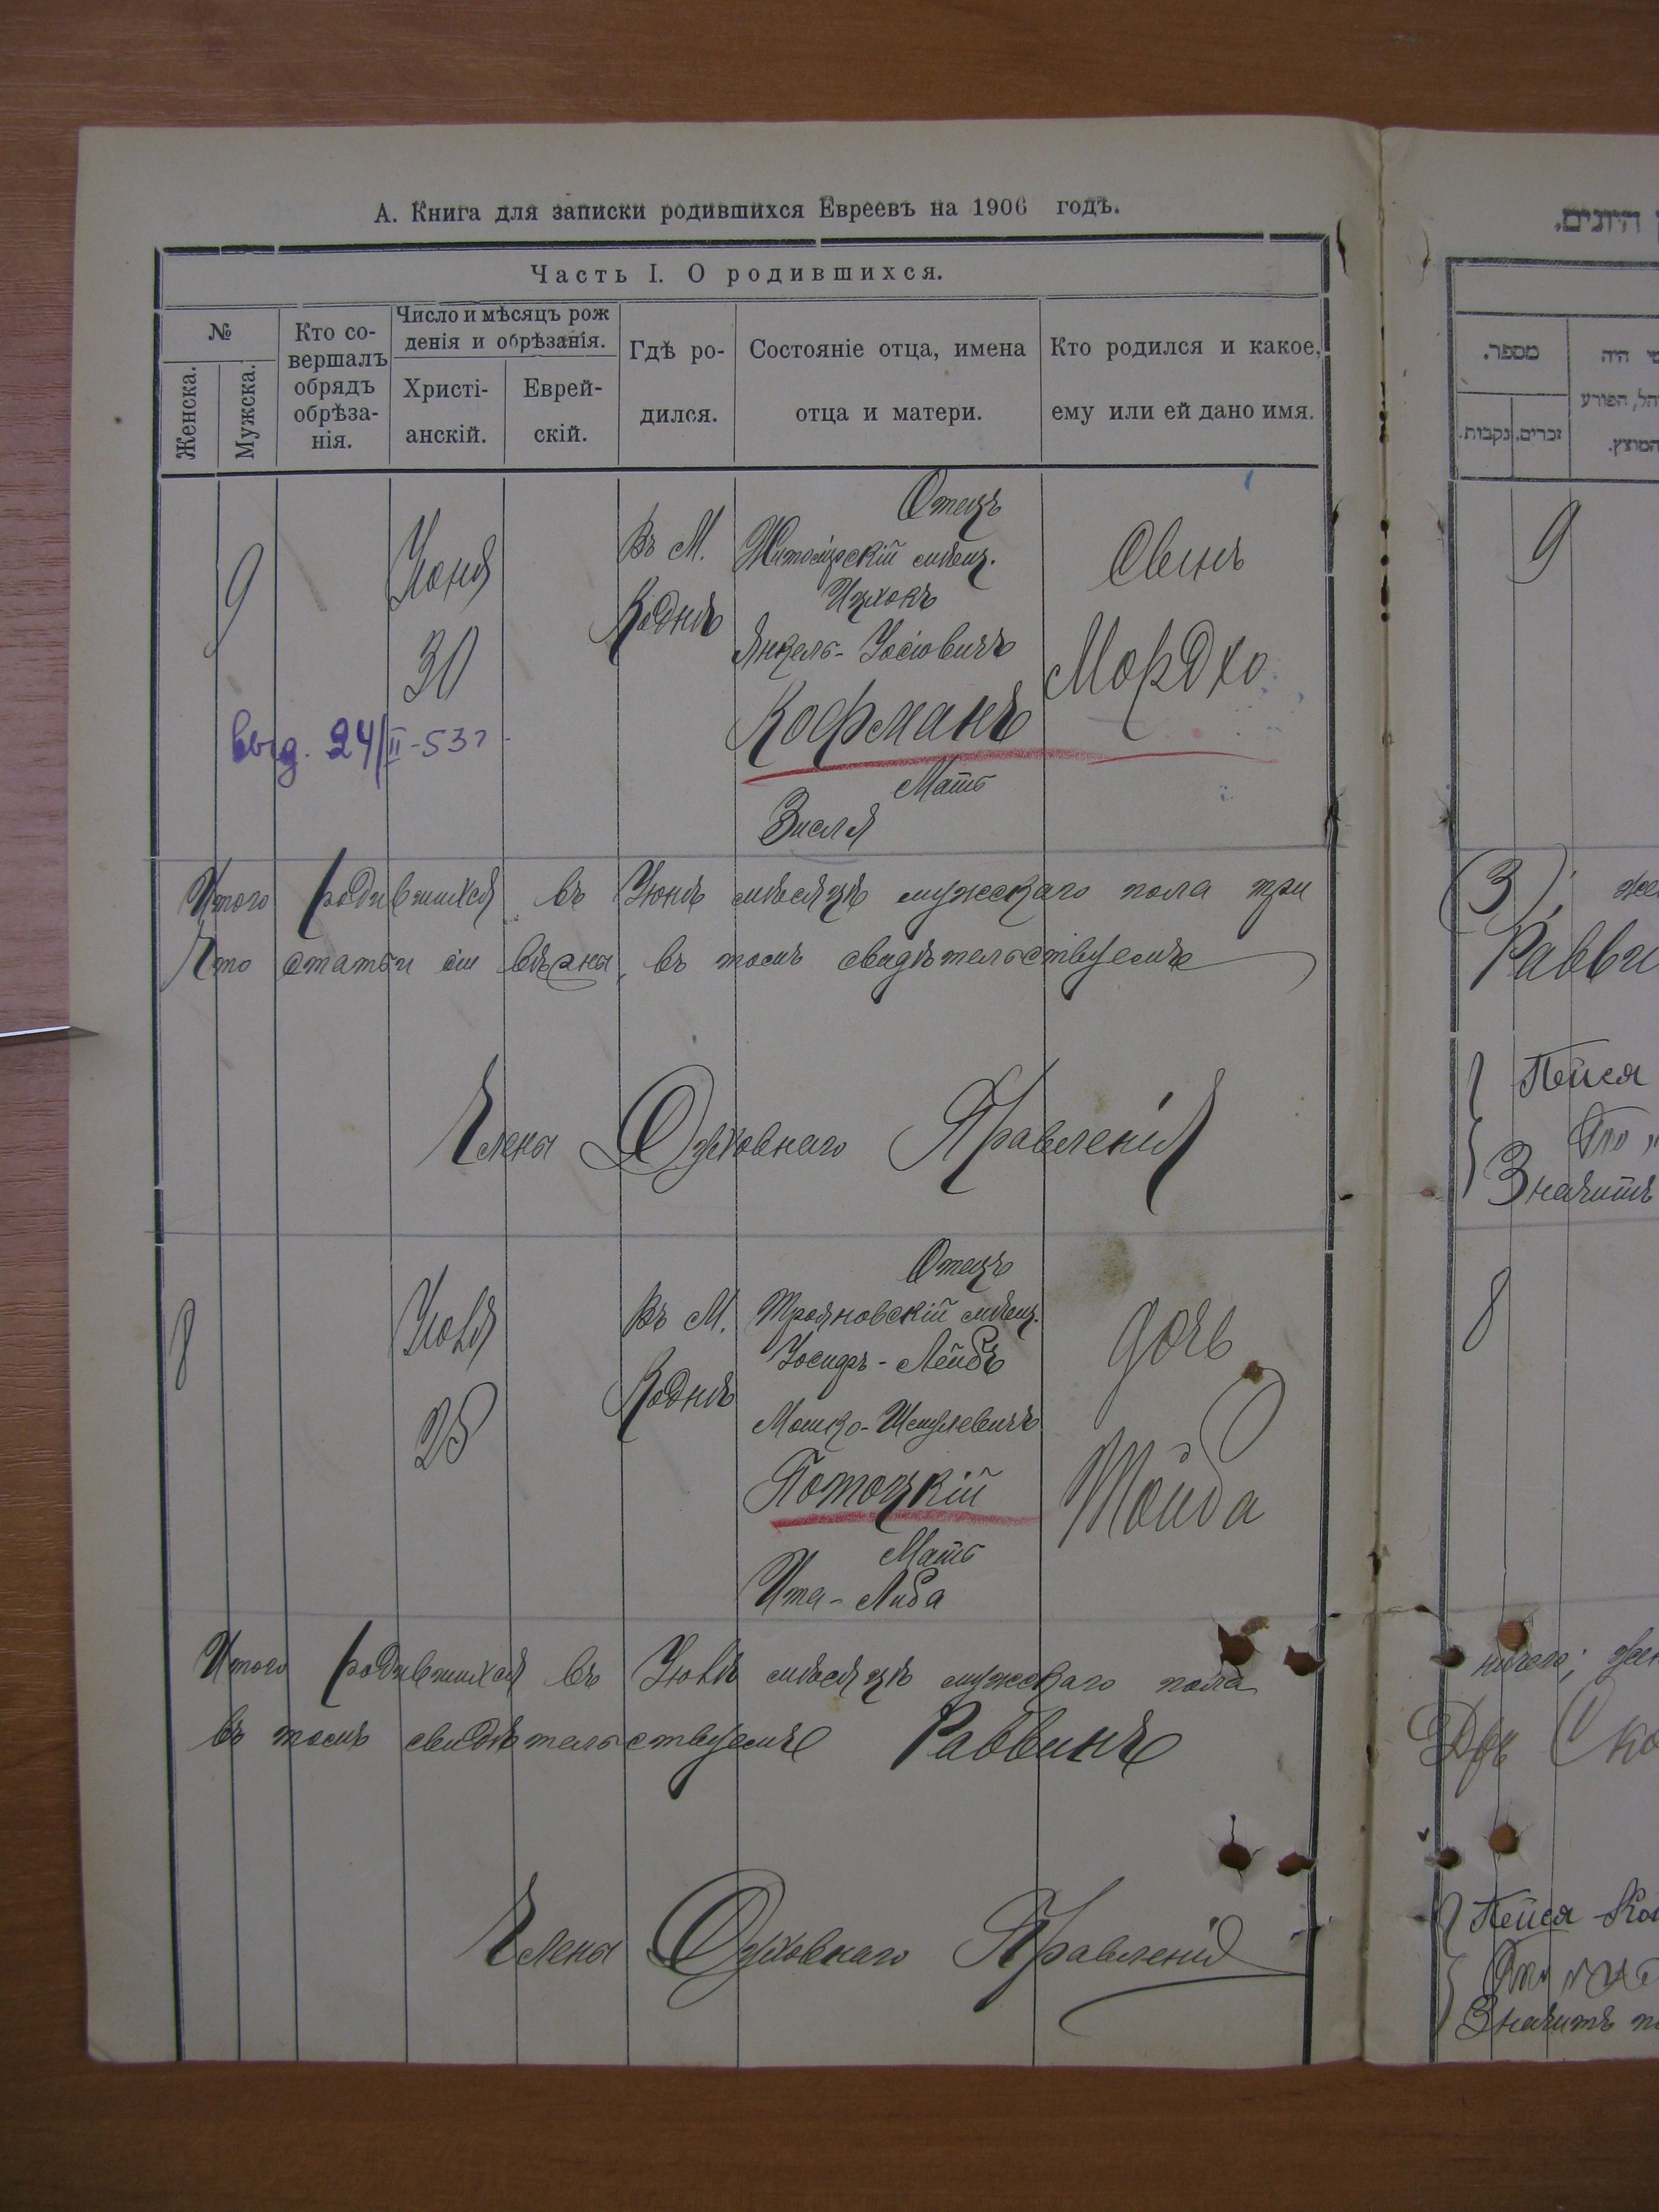 А. Книга для записки родившихся Евреевъ на 1906 годъ.
Часть I. О родившихся.
№
Женска.
Мужска.
Кто со-
вершалъ
обрядъ
обрѣза-
нія.
Число и мѣсяцъ рож
денія и обрѣзанія.
Христі-
анскій.
Еврей-
скій.
Гдѣ ро-
дился.
Состояніе отца, имена
отца и матери.
Кто родился и какое,
ему или ей дано имя.
9
Іюня
30
Въ М.
Коднѣ
Отецъ
Житомірскій мѣщ.
Ицхокъ
Янкель-Іосіовичъ
Кофманъ
Мать
Зисля
Сынъ
Мордхо
выд. 24/II-53г
Итого родившихся въ Іюнѣ мѣсяцѣ мужескаго пола три
Что статьи сіи вѣрны, въ томъ свидѣтельствуемъ
Члены Духовнаго Правленія
8
Іюля
25
Въ М.
Коднѣ
Отецъ
Трояновскій мѣщ.
Іосифъ-Лейбъ
Мошко-Шмулевичъ
Потоцкій
Мать
Ита-Либа
дочь
Тойба
Итого родившихся въ Іюлѣ мѣсяцѣ мужескаго пола
въ томъ свидѣтельствуемъ Раввинъ
Члены Духовнаго Правленія
היונים.
מספר.
זכרים.
נקבות.
9
(3);
Пейся
Значитъ
8
ничего;
Пейся
Значитъ